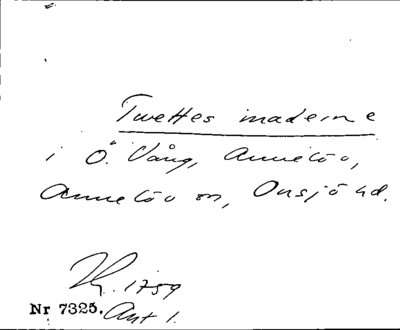 Twettes maderne
i Ö. Vång, Annelöv,
Annelöv sn, Onsjö hd.
1759
Nr 7325. Akt 1.